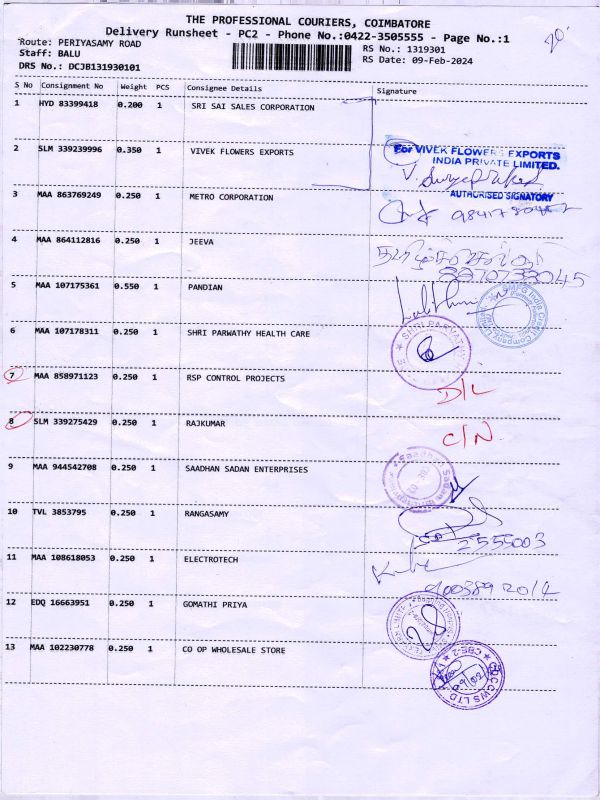 THE PROFESSIONAL COURIERS, COIMBATORE
Delivery Runsheet - PC2 - Phone No.:0422-3505555 - Page No.:1
20
Route: PERIYASAMY ROAD
Staff: BALU
DRS No.: DCJB131930101
RS No.: 1319301
RS Date: 09-Feb-2024
S No Consignment No Weight PCS Consignee Details Signature
1 HYD 83399418 0.200 1 SRI SAI SALES CORPORATION
2 SLM 339239996 0.350 1 VIVEK FLOWERS EXPORTS
For VIVEK FLOWERS EXPORTS
INDIA PRIVATE LIMITED.
AUTHORISED SIGNATORY
3 MAA 863769249 0.250 1 METRO CORPORATION
4 MAA 864112816 0.250 1 JEEVA
5 MAA 107175361 0.550 1 PANDIAN
6 MAA 107178311 0.250 1 SHRI PARWATHY HEALTH CARE
7 MAA 858971123 0.250 1 RSP CONTROL PROJECTS
D/L
8 SLM 339275429 0.250 1 RAJKUMAR
C/N
9 MAA 944542708 0.250 1 SAADHAN SADAN ENTERPRISES
10 TVL 3853795 0.250 1 RANGASAMY
2555003
11 MAA 108618053 0.250 1 ELECTROTECH
12 EDQ 16663951 0.250 1 GOMATHI PRIYA
13 MAA 102230778 0.250 1 CO OP WHOLESALE STORE